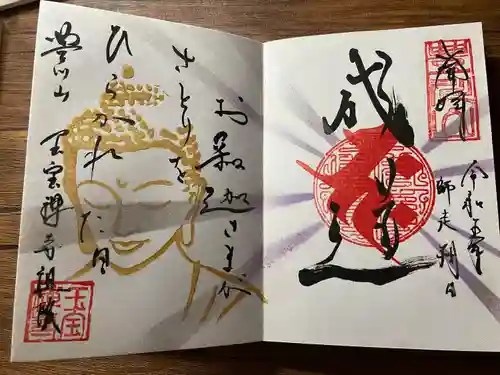 奉拝
令和五年
師走朔日
成道会
お釈迦さまが
さとりを
ひらかれた日
豊川山 玉宝禅寺
玉宝